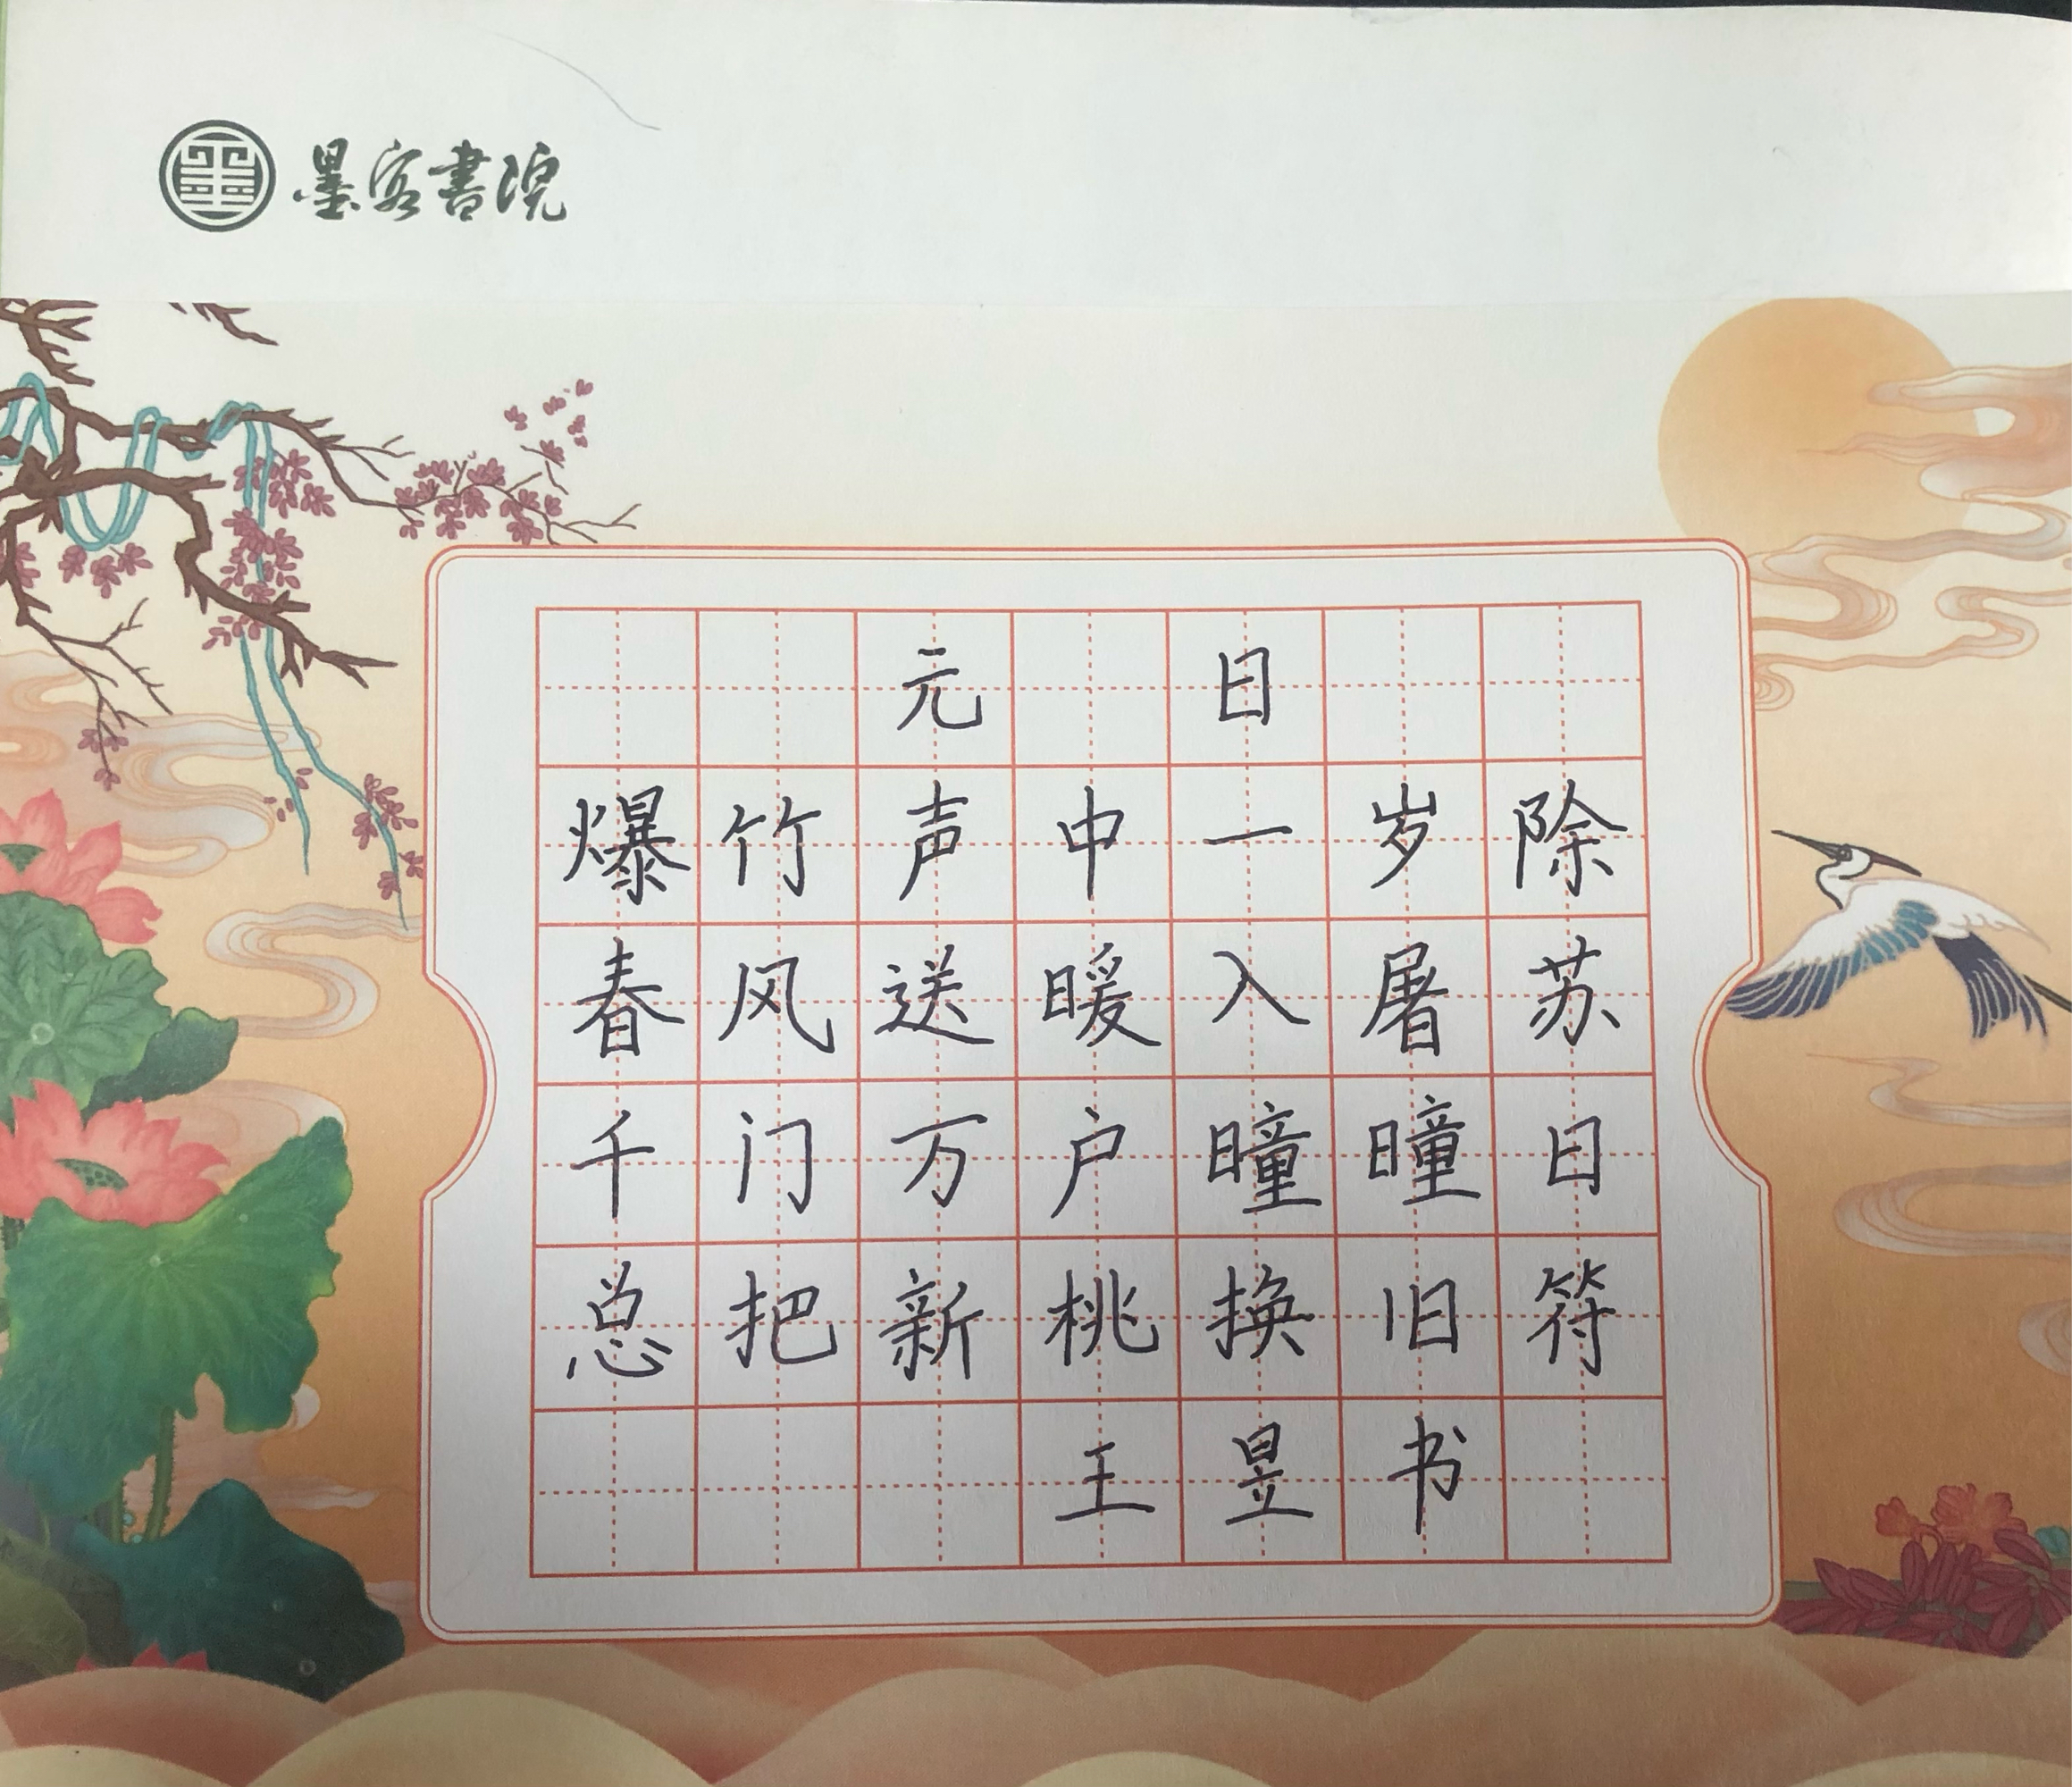 墨客書院
元日
爆竹声中一岁除
春风送暖入屠苏
千门万户曈曈日
总把新桃换旧符
王昱书